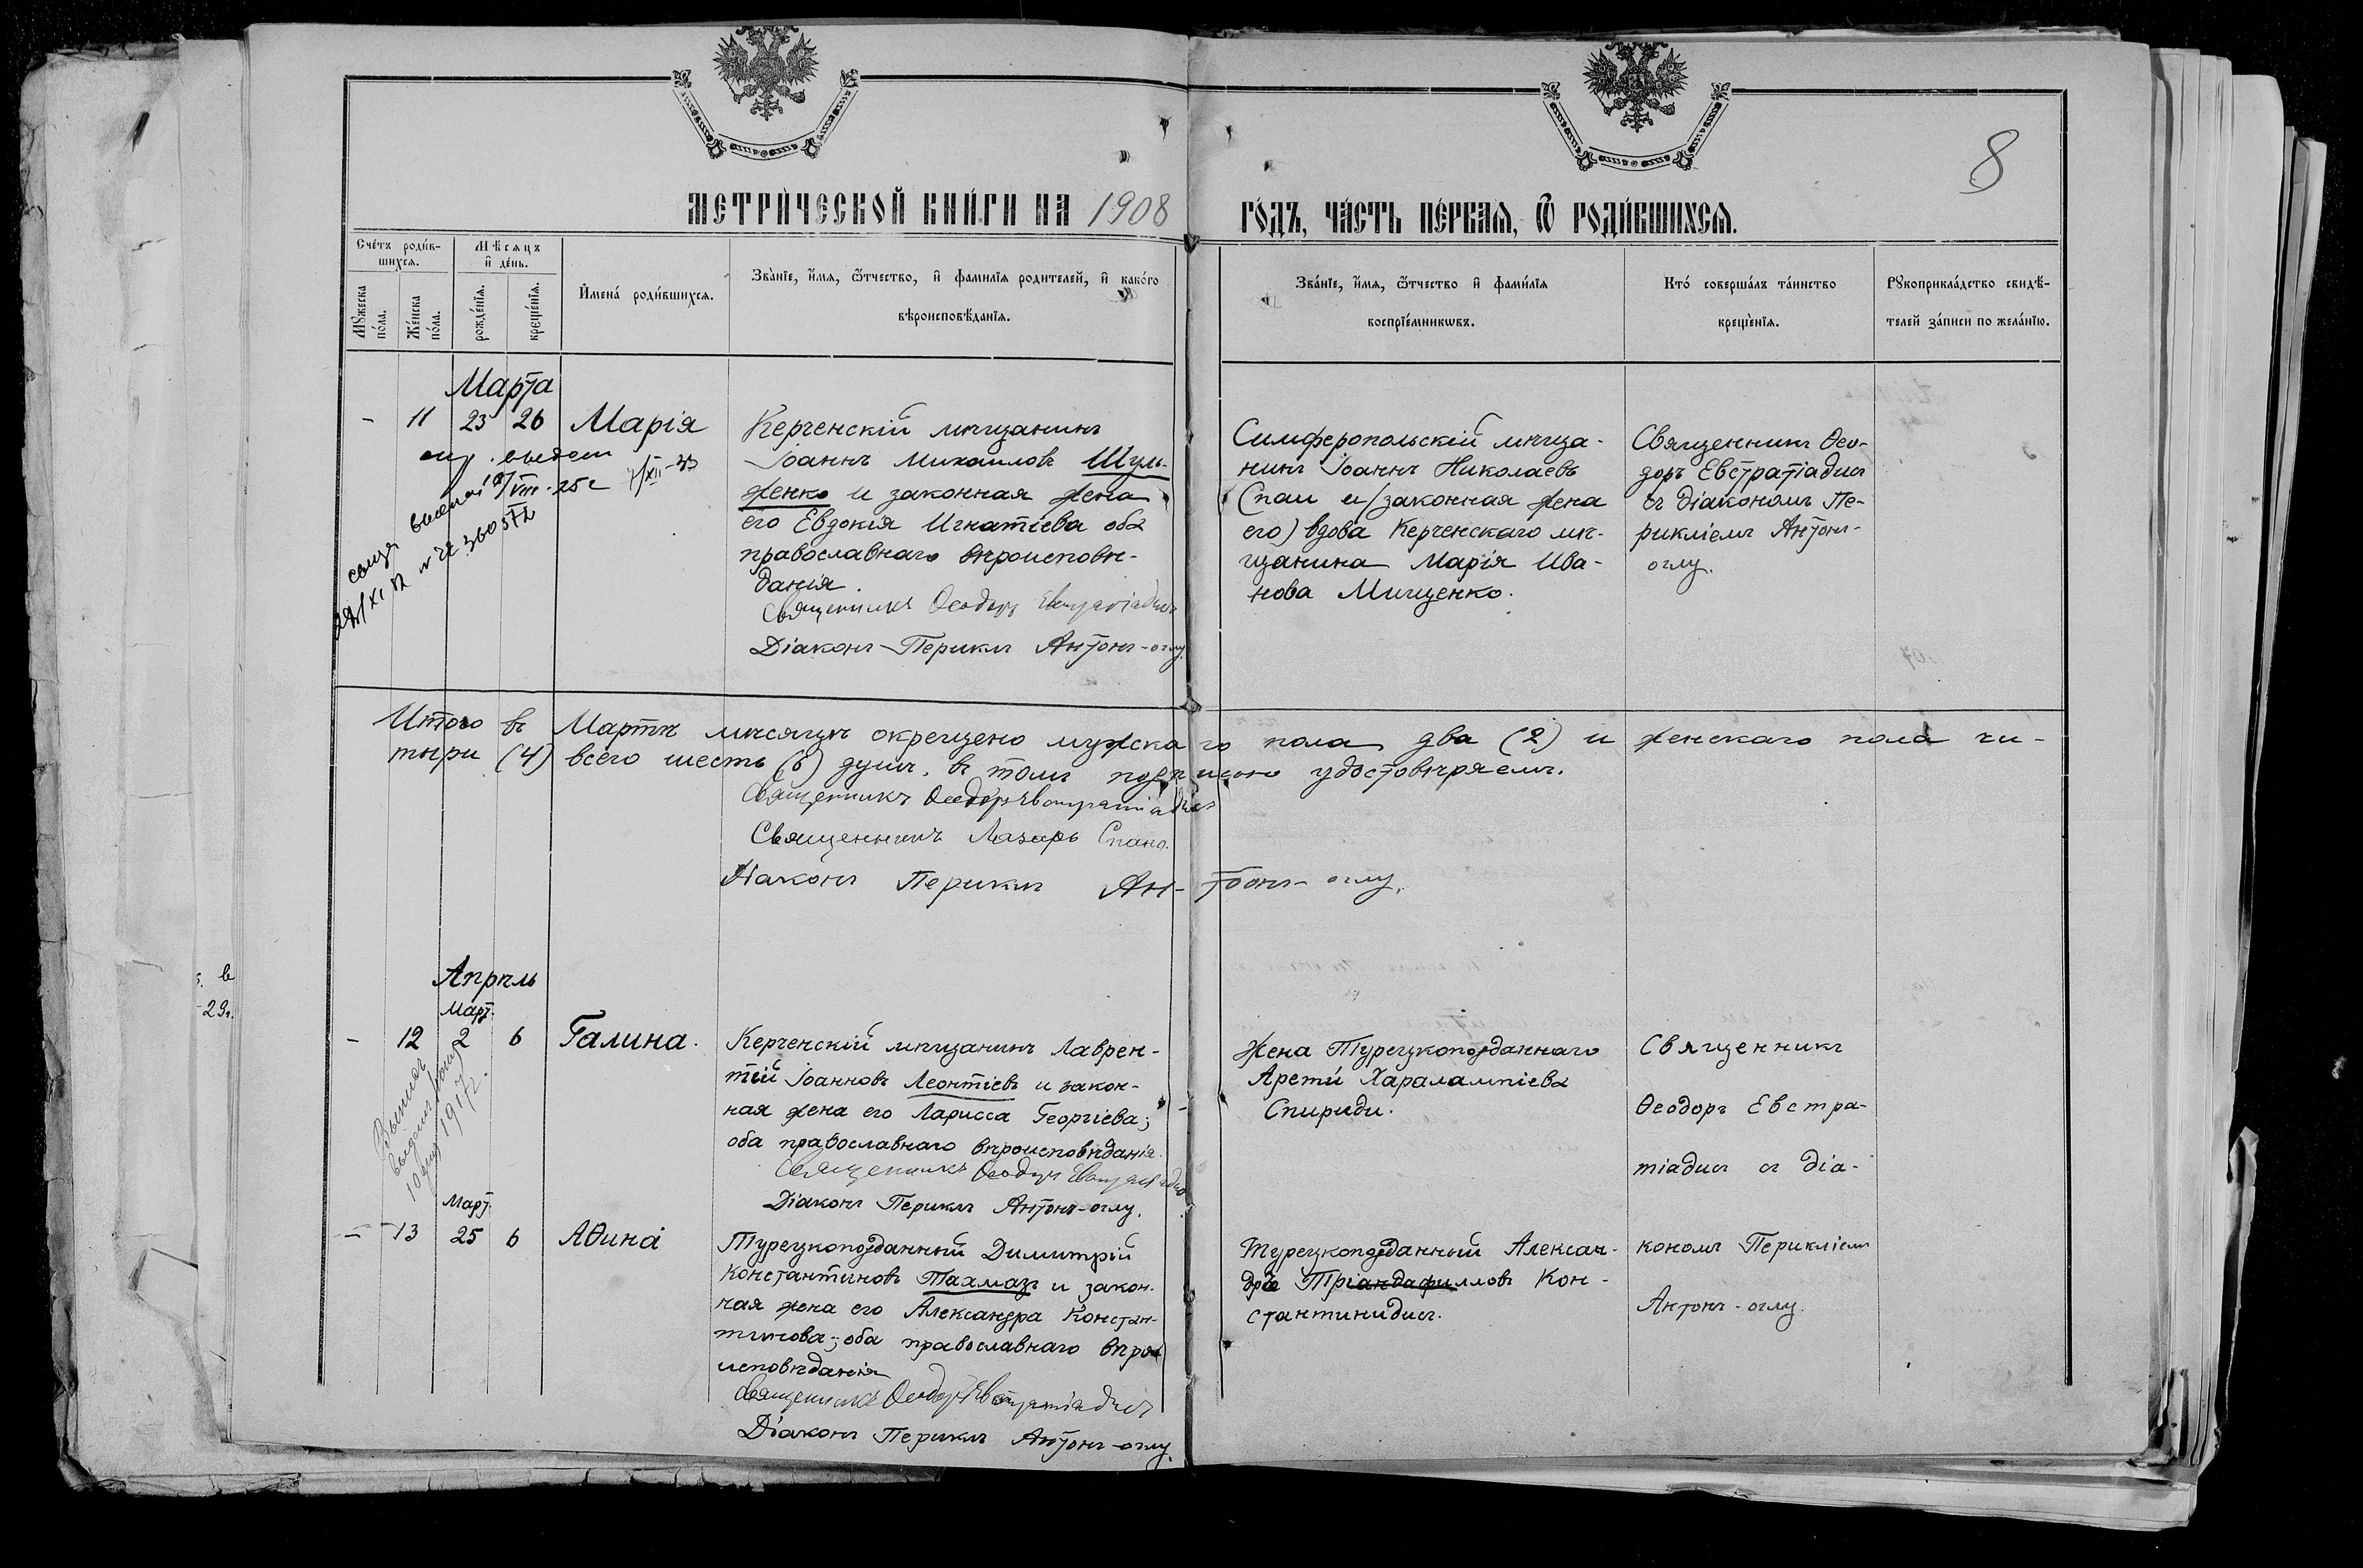 8
МЕТРИ́ЧЕСКОЙ КНИ́ГИ НА 1908
ГО́ДЪ, ЧА́СТЬ ПЕ́РВАЯ, Ѿ РОДИ́ВШИХСЯ.
Сче́тъ роди́в-
шихся.
Мѣ́сяцъ
и де́нь.
Мꙋжеска
по́ла.
Же́нска
по́ла.
рожде́нїя.
креще́нїя.
Имена́ роди́вшихся.
Зва́нїе, и́мя, ѻ́тчество, и фамилїя родителей, и како́го
вѣроисповѣ́данїя.
Зва́нїе, и́мя, ѻ́тчество и фами́лїя
воспрїе́мникѡвъ.
Кто́ соверша́лъ та́инство
креще́нїя.
Рꙋкоприкла́дство свидѣ́-
телей за́писи по жела́нїю.
Марта
- 11 23 26 Марія
Керченскій мѣщанинъ
Іоаннъ Михаиловъ Шуль-
женко и законная жена
его Евдокія Игнатіева оба
православнаго вѣроисповѣ-
данія.
Священникъ Ѳеодоръ Евстратіадисъ
Діаконъ Периклъ Антонъ-оглу.
VIII-25г
XII-33
Симферопольскій мѣща-
нинъ Іоаннъ Николаевъ
Спаи и (законная жена
его) вдова Керченскаго мѣ-
щанина Марія Ива-
нова Мищенко.
Священникъ Ѳео-
доръ Евстратіадисъ
съ діакономъ Пе-
рикліемъ Антонъ-
оглу.
Итого въ Мартѣ мѣсяцѣ окрещено мужскаго пола два (2) и женскаго пола че-
тыри (4) всего шесть (6) душъ. въ томъ подписью удостовѣряемъ.
Священникъ Ѳеодоръ Евстратіадисъ
Священникъ Лазарь Спано.
Діаконъ Периклъ Ан-тонъ-оглу.
в
29г.
Апрѣль
Март.
- 12 2 6 Галина.
Керченскій мѣщанинъ Лаврен-
тій Іоанновъ Леонтіевъ и закон-
ная жена его Ларисса Георгіева;
оба православнаго вѣроисповѣданія.
Священникъ Ѳеодоръ Евстратіадисъ
Діаконъ Периклъ Антонъ-оглу.
Жена Турецкоподданнаго
Арети́ Харалампіева
Спириди.
Священникъ
Ѳеодоръ Евстра-
тіадисъ съ діа-
кономъ Перикліемъ
Антонъ-оглу.
1917г.
Март.
- 13 25 6 Аѳина́
Турецкоподданный Димитрій
Константиновъ Тахмазъ и закон-
ная жена его Александра Констан-
тинова; оба православнаго вѣро
исповѣданія
Священникъ Ѳеодоръ Евстратіадисъ
Діаконъ Периклъ Антонъ-оглу.
Турецкоподданный Алексан-
дръ Тріандафилловъ Кон-
стантинидисъ.